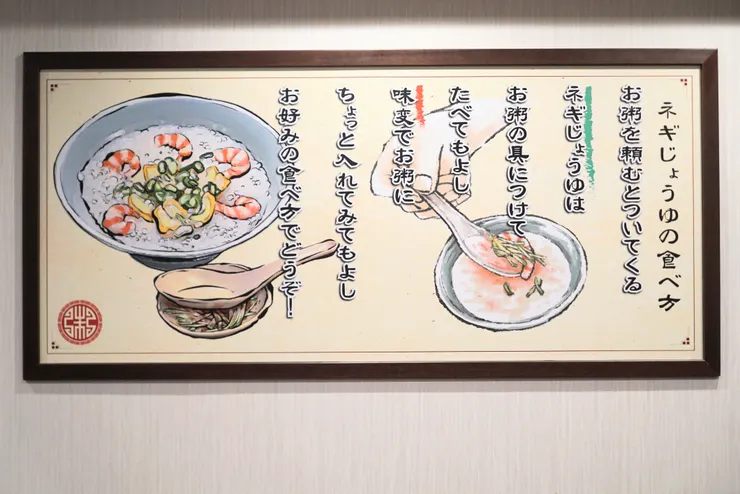 ネギじょうゆの食べ方
お粥を頼むとついてくる
ネギじょうゆは
お粥の具につけて
たべてもよし
味変でお粥に
ちょっと入れてみてもよし
お好みの食べ方でどうぞ！